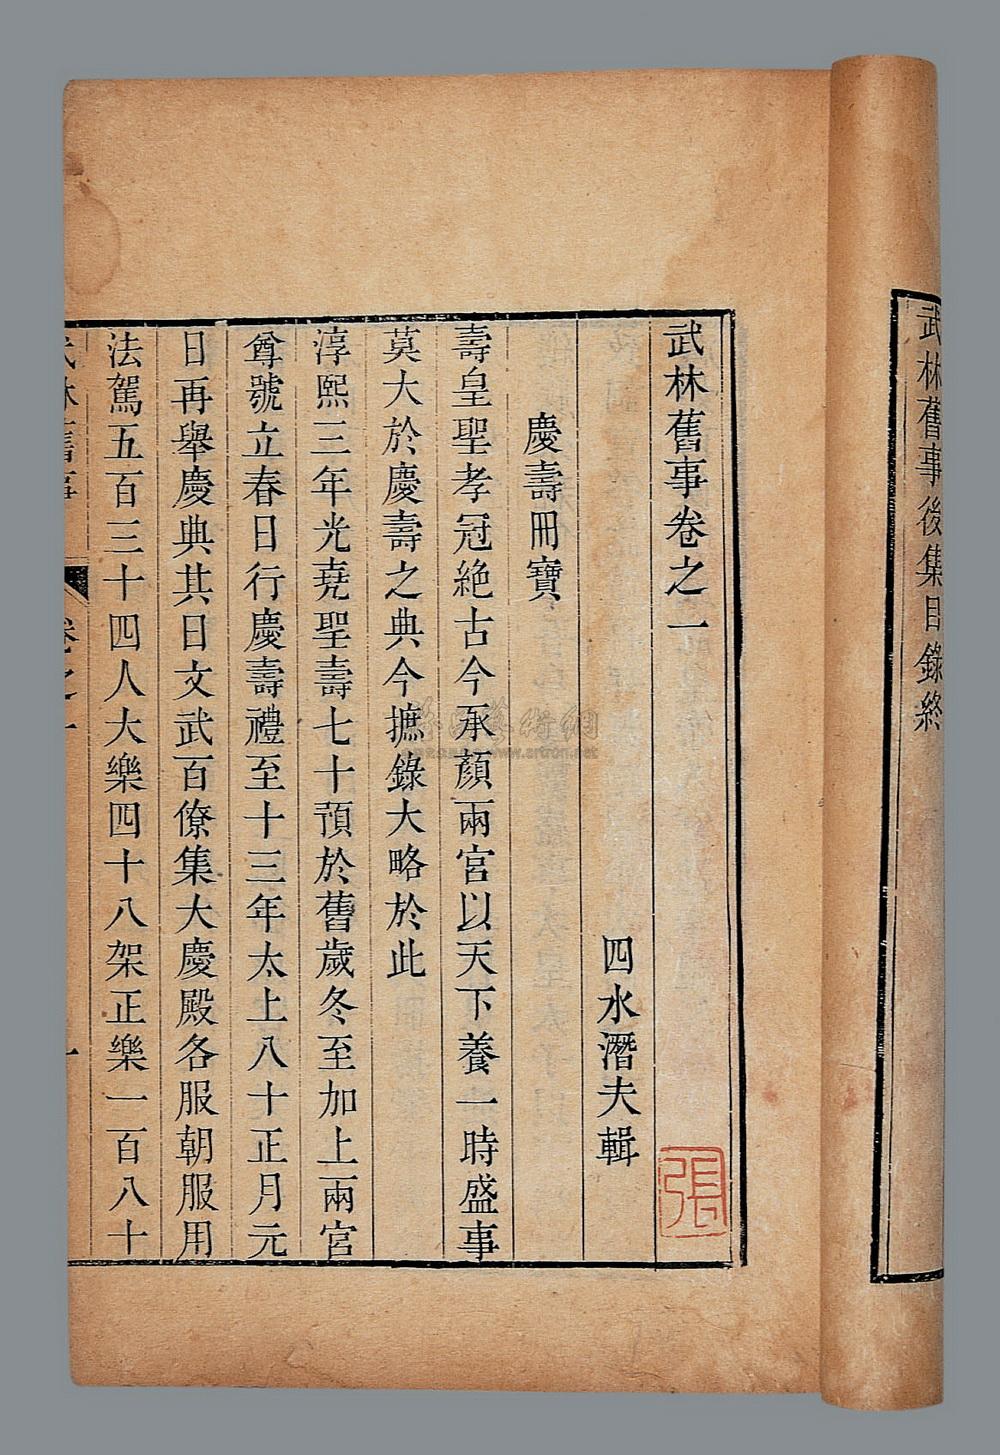 武林舊事後集目錄終
武林舊事卷之一
四水潛夫輯
慶壽冊寶
壽皇聖孝冠絶古今承顏兩宮以天下養一時盛事
莫大於慶壽之典今摭錄大略於此
淳熙三年光堯聖壽七十預於舊歲冬至加上兩宮
尊號立春日行慶壽禮至十三年太上八十正月元
日再舉慶典其日文武百僚集大慶殿各服朝服用
法駕五百三十四人大樂四十八架正樂一百八十
武林舊事
卷之一
一
張
www.artron.net